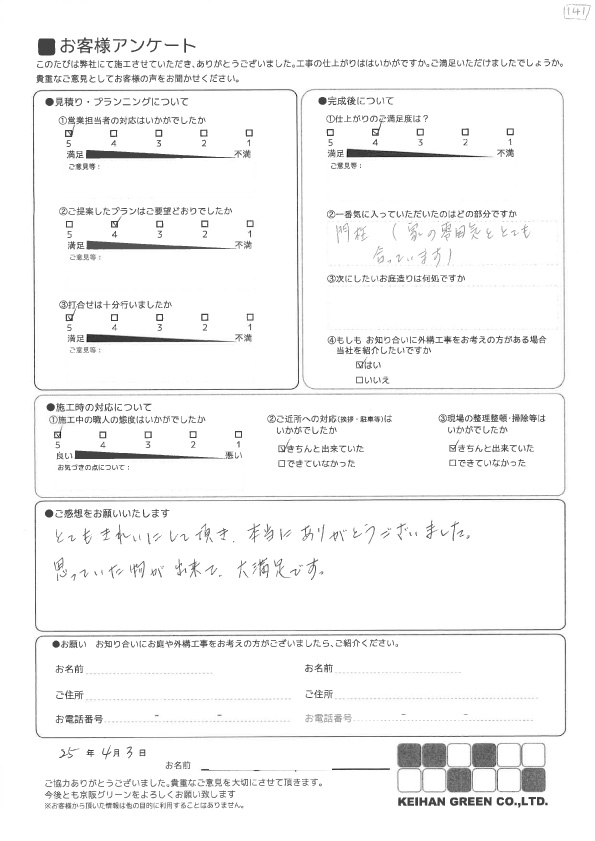 141
■お客様アンケート
このたびは弊社にて施工させていただき、ありがとうございました。工事の仕上がりははいかがですか。ご満足いただけましたでしょうか。
貴重なご意見としてお客様の声をお聞かせください。
●見積り・プランニングについて
①営業担当者の対応はいかがでしたか
5 4 3 2 1
満足 不満
ご意見等：
②ご提案したプランはご要望どおりでしたか
5 4 3 2 1
満足 不満
ご意見等：
③打合せは十分行いましたか
5 4 3 2 1
満足 不満
ご意見等：
●完成後について
①仕上がりのご満足度は？
5 4 3 2 1
満足 不満
ご意見等：
②一番気に入っていただいたのはどの部分ですか
門柱 （家の雰囲気ととても
合っています）
③次にしたいお庭造りは何処ですか
④もしも お知り合いに外構工事をお考えの方がある場合
当社を紹介したいですか
☑はい
□いいえ
●施工時の対応について
①施工中の職人の態度はいかがでしたか
5 4 3 2 1
良い 悪い
お気づきの点について：
②ご近所への対応(挨拶・駐車等)は
いかがでしたか
☑きちんと出来ていた
□できていなかった
③現場の整理整頓・掃除等は
いかがでしたか
☑きちんと出来ていた
□できていなかった
●ご感想をお願いいたします
とてもきれいにして頂き、本当にありがとうございました。
思っていた物が出来て、大満足です。
●お願い お知り合いにお庭や外構工事をお考えの方がございましたら、ご紹介ください。
お名前 お名前
ご住所 ご住所
お電話番号 - - お電話番号 - -
25 年 4 月 3 日
お名前
ご協力ありがとうございました。貴重なご意見を大切にさせて頂きます。
今後とも京阪グリーンをよろしくお願い致します
※お客様から頂いた情報は他の目的に利用することはありません。
KEIHAN GREEN CO.,LTD.